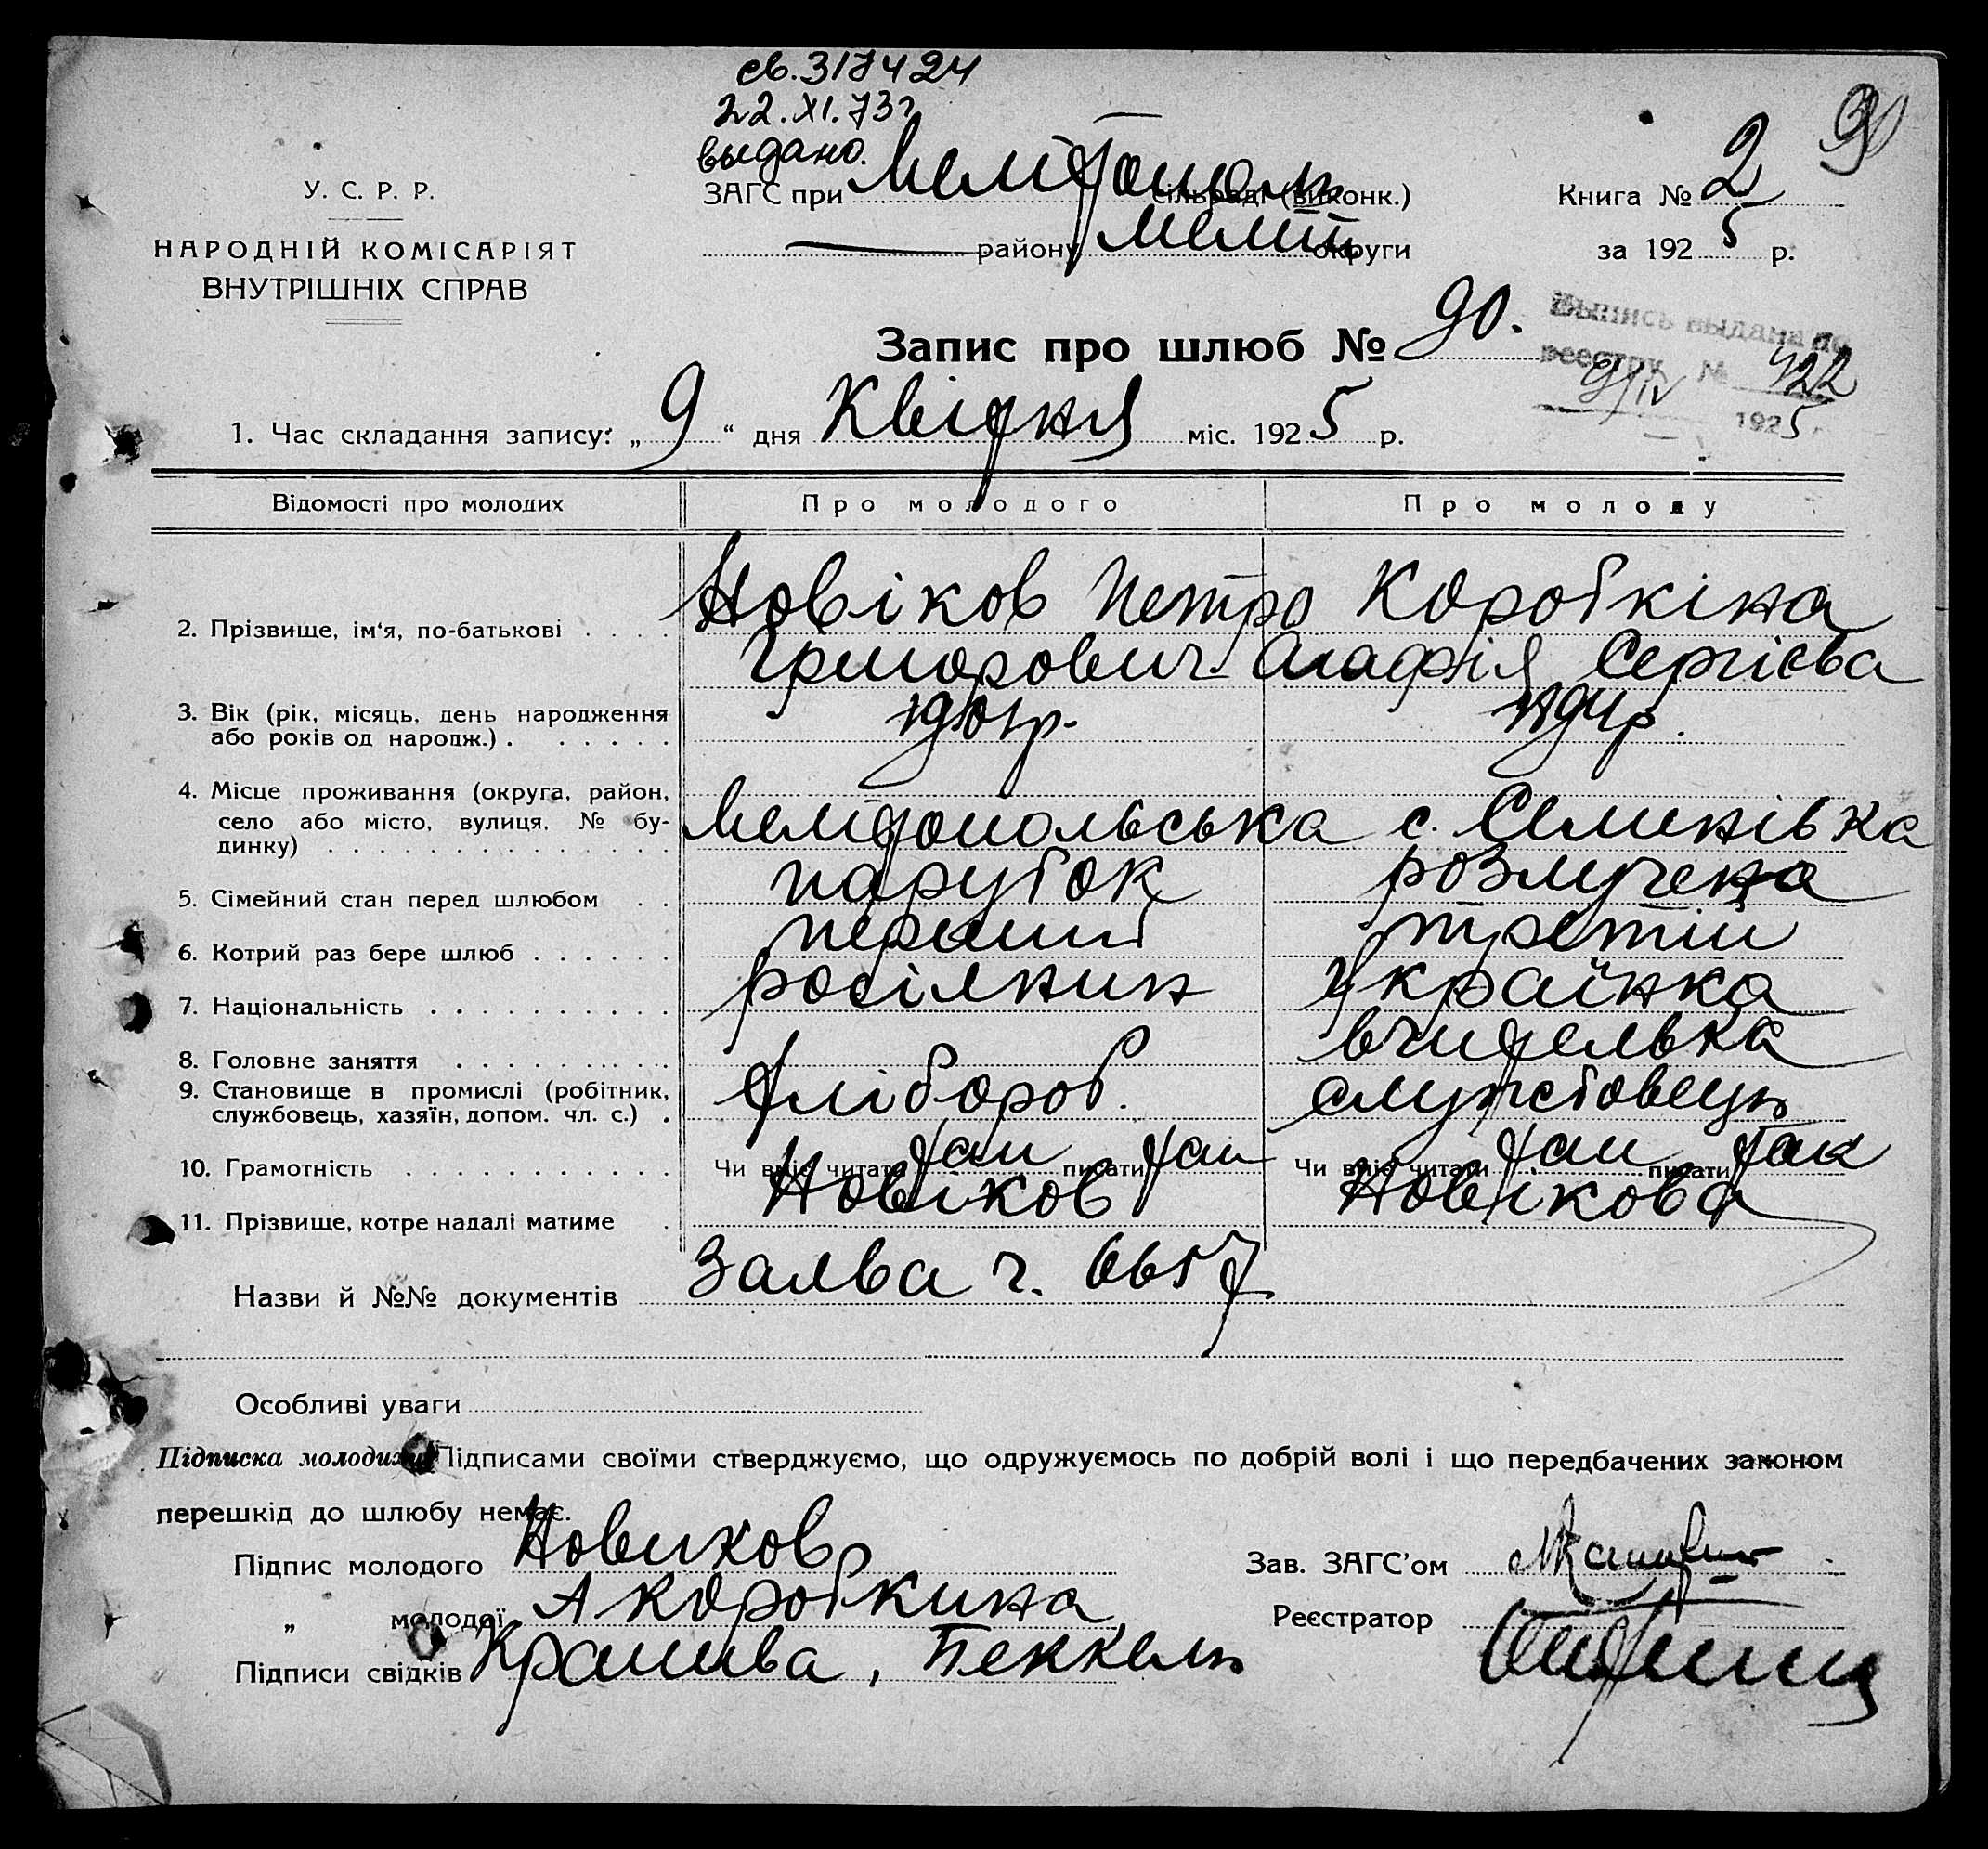 св. 317424
22.XI.73г
выдано.
У. С. Р. Р.
НАРОДНІЙ КОМІСАРІЯТ
ВНУТРІШНІХ СПРАВ
ЗАГС при Мелітополь сільраді (виконк.)
району Меліт округи
Книга № 2
за 1925 р.
Запис про шлюб № 90.
Выпись выдана по
реестру № 422
9/IV 1925 г
1. Час складання запису: „ 9 “ дня Квітня міс. 1925 р.
Відомості про молодих Про молодого Про молоду
2. Прізвище, ім‘я, по-батькові . . . . Новіков Петро Коробкіна
Григорович Агафія Сергієва
3. Вік (рік, місяць, день народження
або років од народж.) . . . . . . 1901р. 1894р.
4. Місце проживання (округа, район,
село або місто, вулиця, № бу-
динку) . . . . . . . . . . . . . . Мелітопольська с. Семенівка
5. Сімейний стан перед шлюбом . . парубок розлучена
6. Котрий раз бере шлюб . . . . . . перший третій
7. Національність . . . . . . . . . . росіянин Українка
8. Головне заняття . . . . . . . . . . вчителька
9. Становище в промислі (робітник,
службовець, хазяїн, допом. чл. с.) . хлібороб. службовець
10. Грамотність . . . . . . . . . . . . Чи вміє читати так писати так Чи вміє читати так писати так
11. Прізвище, котре надалі матиме . Новіков Новікова
Назви й №№ документів Заява ч. 6657
Особливі уваги
Підписка молодих: Підписами своїми стверджуємо, що одружуємось по добрій волі і що передбачених законом
перешкід до шлюбу немає.
Підпис молодого Новиков
Зав. ЗАГС’ом
„ молодої А Коробкина
Реєстратор
Підписи свідків , Беккель